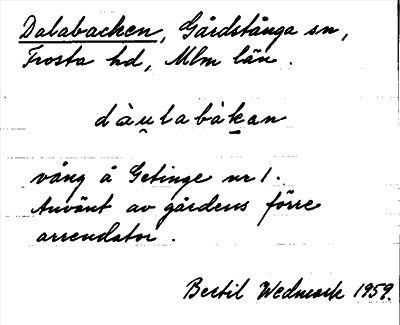 Dalabacken, Gårdstånga sn,
Frosta hd, Mlm län.
dàu̯labàkan
vång å Getinge nr 1.
Använt av gårdens förre
arrendator.
Bertil Wedmark 1959.